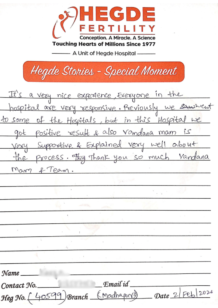 HEGDE
FERTILITY
Conception. A Miracle. A Science
Touching Hearts of Millions Since 1977
A Unit of Hegde Hospital
Hegde Stories - Special Moment
It's a very nice experience, Everyone in the
hospital are very responsive. Previously we went
to some of the Hospitals, but in this Hospital we
got positive result & also Vandana mam is
very Supportive & Explained very well about
the process. Thank you so much Vandana
Mam & Team.
Name
Contact No. Email id
Heg No. (40599) Branch (Madinaguda) Date 2/Feb/2020